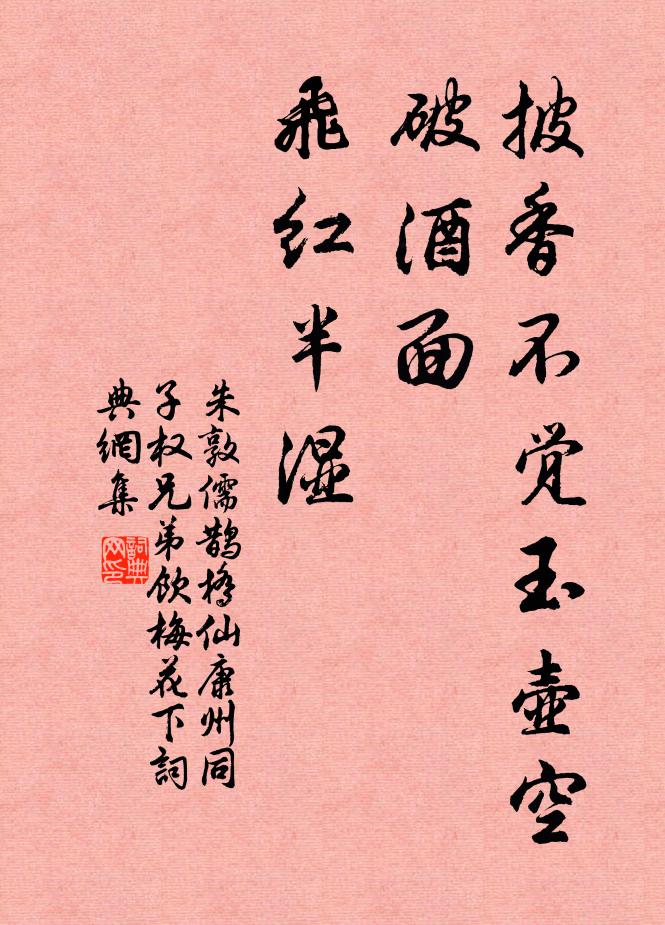 披香不觉玉壶空
破酒面
飛红半湿
朱敦儒鹊橋仙康州同
子权兄弟饮梅花下詞
典網集
詞典
网印